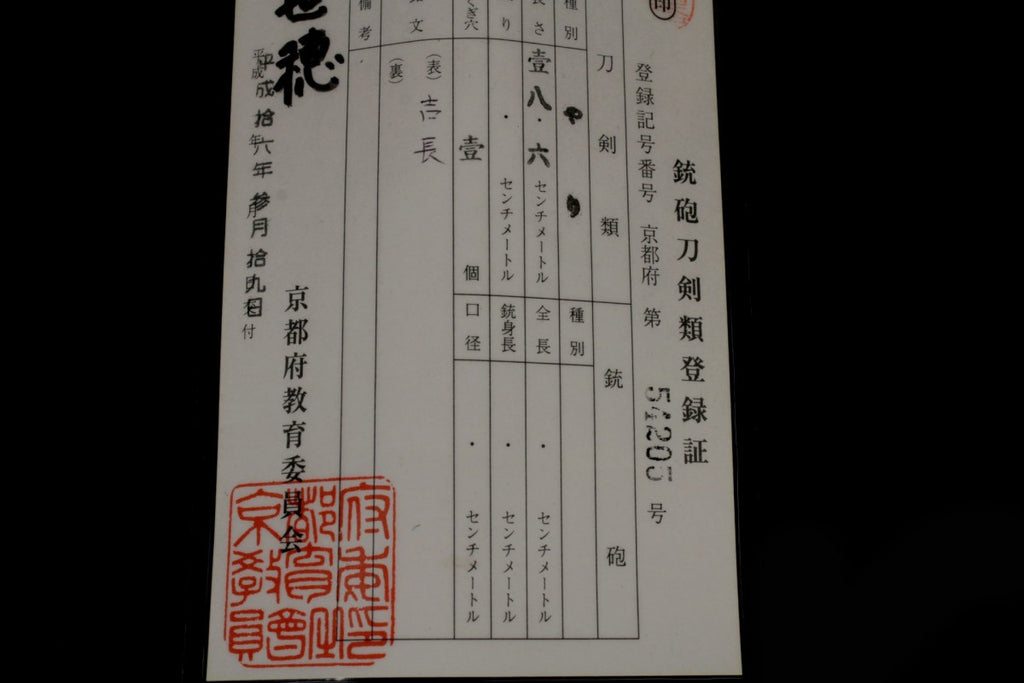 銃砲刀剣類登録証
印
登録記号番号 京都府 第 54205 号
刀剣類 銃砲
種別 やり 種別
長さ 壹八.六 センチメートル 全長 . センチメートル
り . センチメートル 銃身長 . センチメートル
くぎ穴 壹 個 口径 . センチメートル
文 (表) 吉長
(裏)
備考
平成拾六年参月拾九日
平成 年 月 日 交付
京都府教育委員会
穂